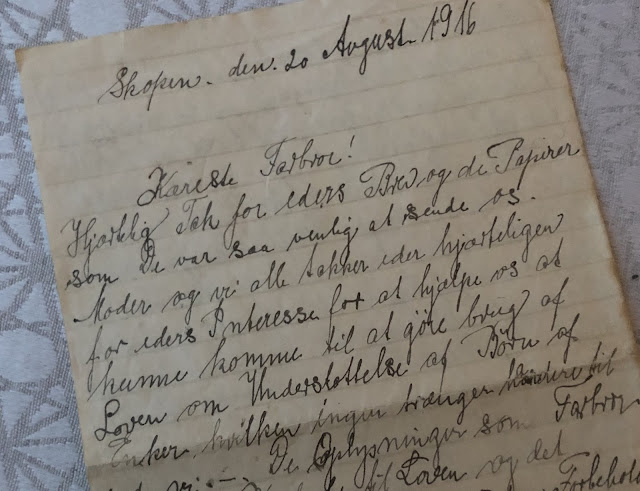 Skopen. den. 20 August. 1916
Kæreste Farbroe!
Hjærtelig Tak for eders Brev og de Papirer
som De var saa venlig at sende os.
Moder og vi alle takker eder hjærteligen
for eders Interesse for at hjælpe os at
kunne komme til at göre brug af
Loven om Understøttelse af Börn af
Enker, hvilken ingen trænger hårdere til
end vi. — De Oplysninger som Farbroe
til Loven og det
Forbehold